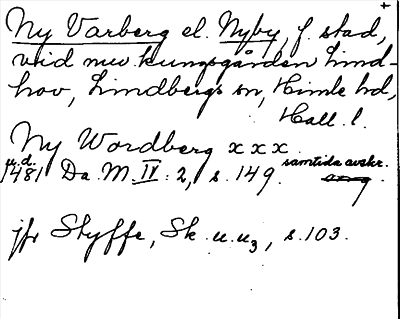 Ny Varberg el. Nyby, f. stad,
vid nuv. kungsgården Lind-
hov, Lindbergs sn, Himle hd,
Hall. l.
Ny Wordberg x x x.
u.d. samtida avskr.
1481 Da. M. IV: 2, s. 149.
jfr Styffe, Sk. u. u3, s. 103.